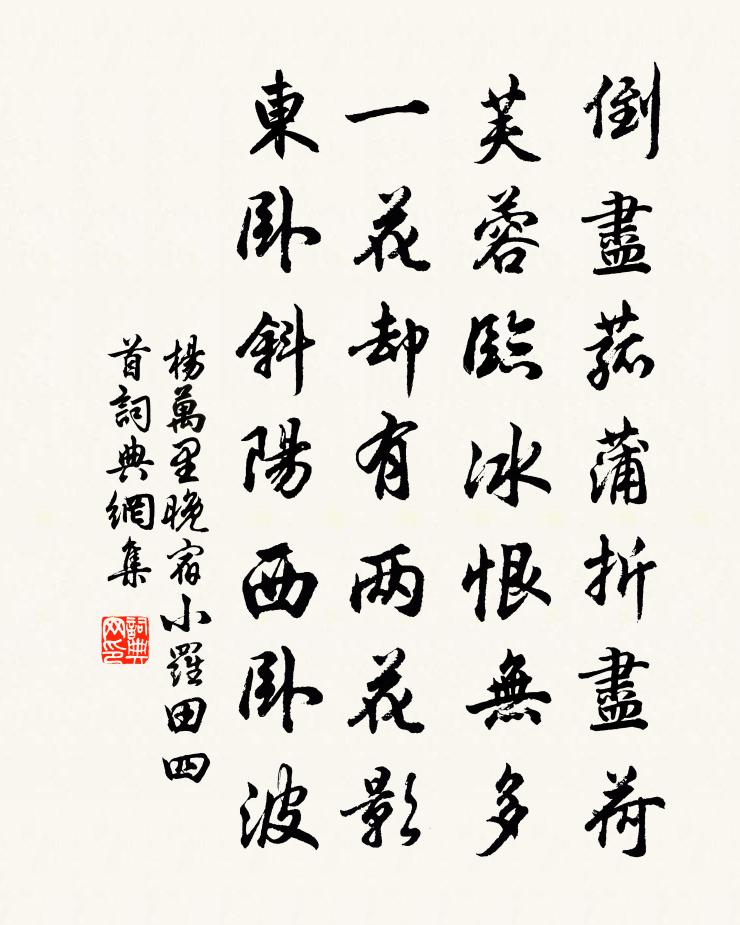 倒盡菰蒲折盡荷
芙蓉臨冰恨無多
一花却有兩花影
東卧斜陽西卧波
楊萬里晚宿小羅田四
首詞典網集
詞典网印